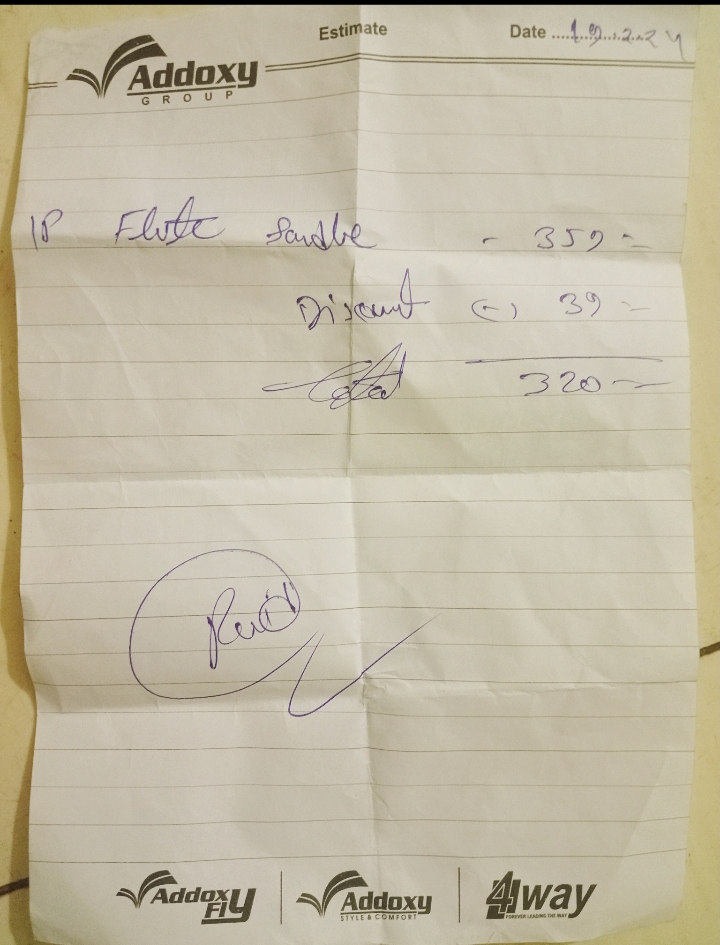 Estimate Date 19.2.24
Addoxy
GROUP
1P Flute Sandle - 359=
Discount (-) 39=
Total 320=
Paid
Addoxy Fly Addoxy 4way
STYLE & COMFORT FOREVER LEADING THE WAY